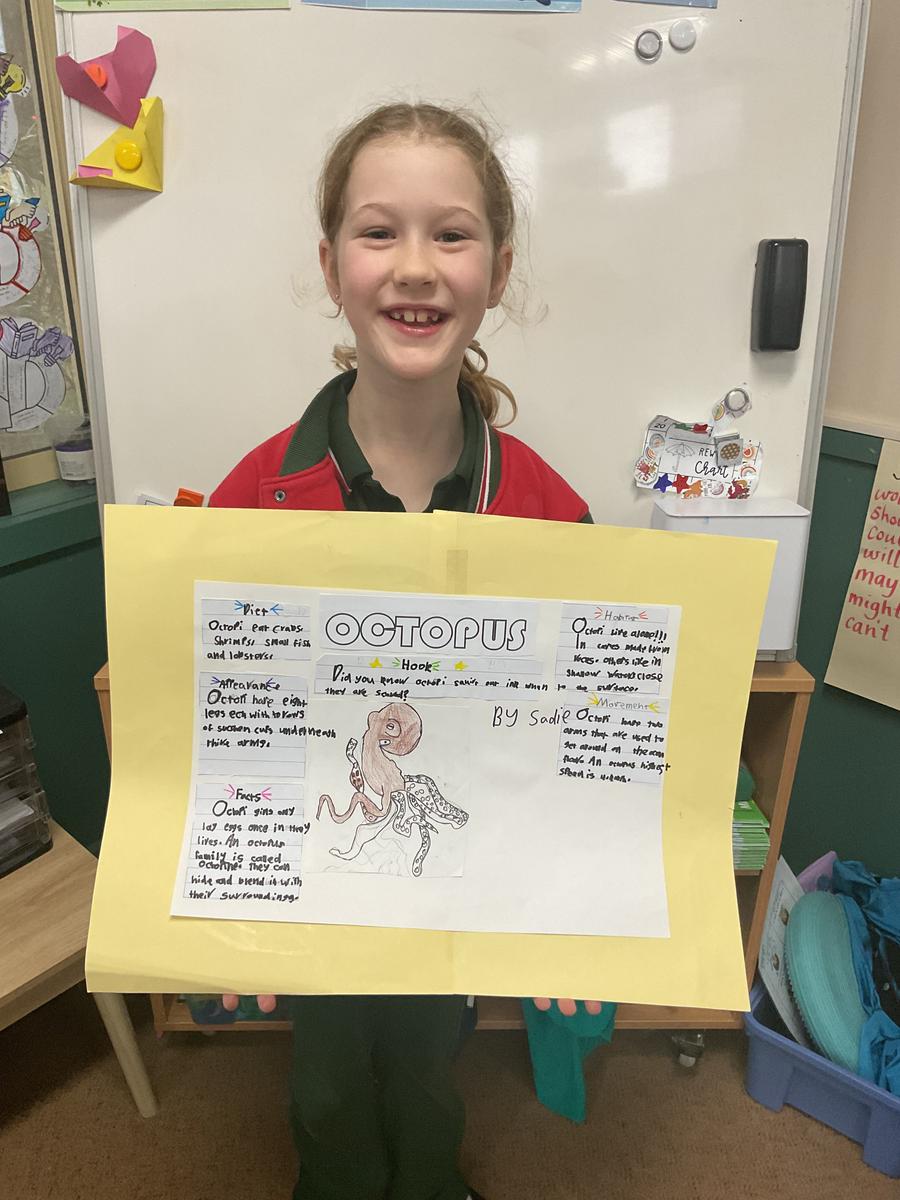 OCTOPUS
Diet
Octopi eat crabs
shrimps, small fish
and lobsters.
Appearance
Octopi have eight
legs ech with to rows
of suction cups underneath
thire arms.
Facts
Octopi girls only
lay eggs once in they
lives. An octopus
family is called
octopine. they can
hide and blend it with
their surroundings.
Hook
Did you know octopi squirt out ink when
they are scared?
BY Sadie
Habitat
Octopi live alone!!!
In caves made from
rocs. others like in
shallow waters close
to the surface.
Movement
Octopi have two
arms that are used to
get around on the
floor. An octopus highest
speed is
REW
Chart
shou
coul
will
may
might
can't